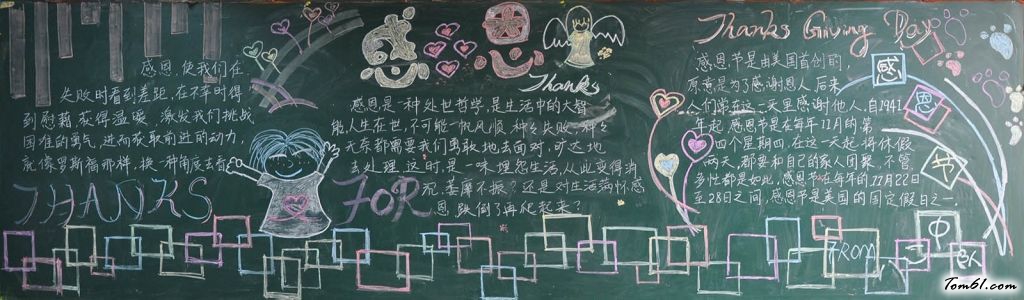 感恩,使我们在
失败时看到差距,在不幸时得
到慰藉获得温暖,激发我们挑战
困难的勇气,进而获取前进的动力,
就像罗斯福那样,换一种角度去看
THANKS
感恩
Thanks
感恩是一种处世哲学,是生活中的大智
人生在世,不可能一帆风顺,种种失败、种种
无奈都需要我们勇敢地去面对,旷达地
去处理。这时,是一味埋怨生活,从此变得消
沉、萎靡不振?还是对生活满怀感
恩,跌倒了再爬起来?
FOR
Thanks Giving Day
感恩节是由美国首创的,
原意是为了感谢恩人,后来
人们常在这一天里感谢他人,自1941
年起,感恩节是在每年11月的第
四个星期四,在这一天起将休假
两天,都要和自己的家人团聚,不管
多忙都是如此,感恩节在每年的11月22日
至28日之间,感恩节是美国的固定假日之一。
感
恩
节
FROM
中
Tom61.com